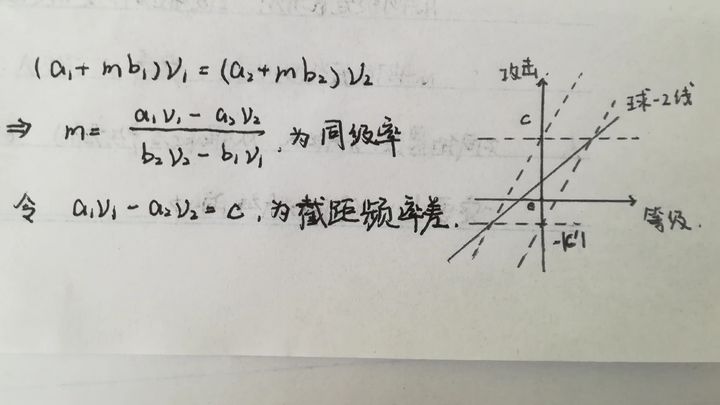 (a₁+mb₁)ν₁=(a₂+mb₂)ν₂
⇒ m= (a₁ν₁-a₂ν₂)/(b₂ν₂-b₁ν₁), 为同级率
令 a₁ν₁-a₂ν₂=c, 为截距频率差.
攻击
球-2线
c
等级.
-|c'|